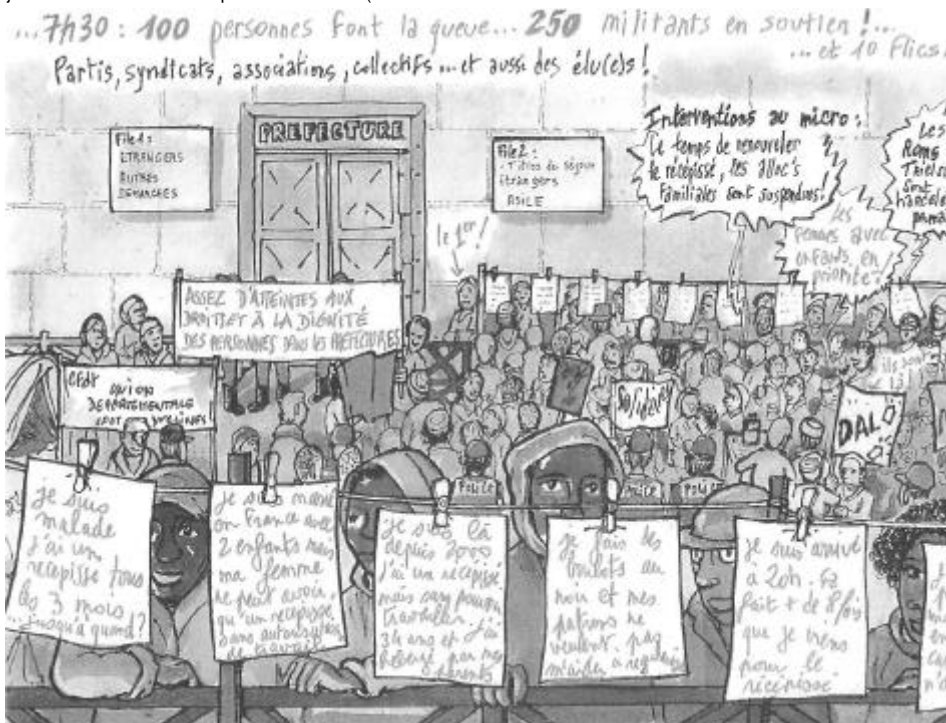 ...7h30 : 100 personnes font la queue... 250 militants en soutien !...
...et 10 flics.
Partis, syndicats, associations, collectifs ... et aussi des élu(e)s !
File 1 :
ETRANGERS
AUTRES
DEMARCHES
PREFECTURE
File 2 :
- Titres de séjour
étrangers
ASILE
Interventions au micro :
Le temps de renouveler
le récépissé, les alloc's
familiales sont suspendues !
Les
sont
le 1er !
Les
avec
enfants en
priorité !
ASSEZ D'ATTEINTES AUX
DROITS ET À LA DIGNITÉ
DES PERSONNES DANS LES PREFECTURES
CFDT
UNION
DEPARTEMENTALE
ils sont
Solidaires
DAL
POLICE
POLICE
POLICE
je suis
malade
j'ai un
récépissé tous
les 3 mois
...jusqu'à quand ?
je suis marié
en France avec
2 enfants mais
ma femme
ne peut avoir
qu'un récépissé
sans autorisation
de travail
je suis là
depuis 2000
j'ai un récépissé
mais sans pouvoir
travailler.
34 ans et j'
hébergé par mes
parents
je fais des
boulots au
noir et mes
patrons ne
veulent pas
m'aider a
je suis arrivé
à 20h. ça
fait + de 8 fois
que je viens
pour le
récépissé